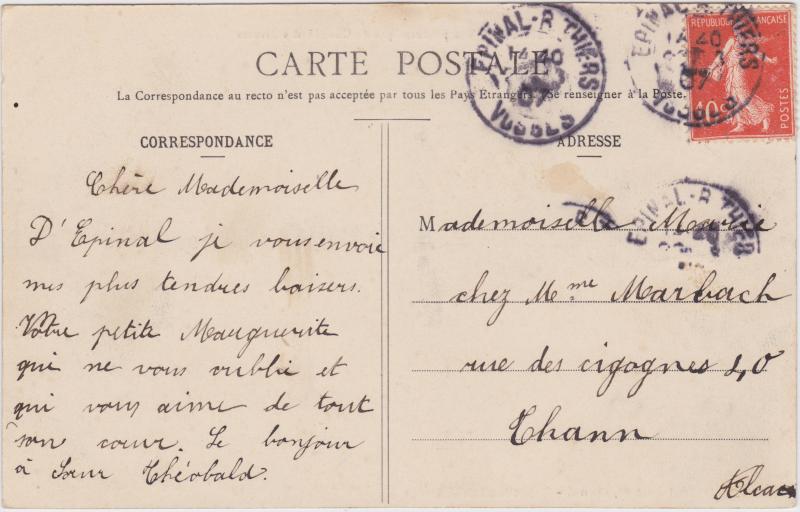 CARTE POSTALE
La Correspondance au recto n'est pas acceptée par tous les Pays Etrangers. (Se renseigner à la Poste.
CORRESPONDANCE
Chère Mademoiselle
D'Epinal je vous envoie
mes plus tendres baisers.
Votre petite Marguerite
qui ne vous oublie et
qui vous aime de tout
son cœur. Le bonjour
à Sœur Théobald.
ADRESSE
Mademoiselle Marie
chez Mme Marbach
rue des cigognes 40
Thann
Alsace
EPINAL-R.THIERS
VOSGES
EPINAL-R.THIERS
14 40
07
VOSGES
REPUBLIQUE FRANÇAISE
POSTES
EPINAL-R.THIERS